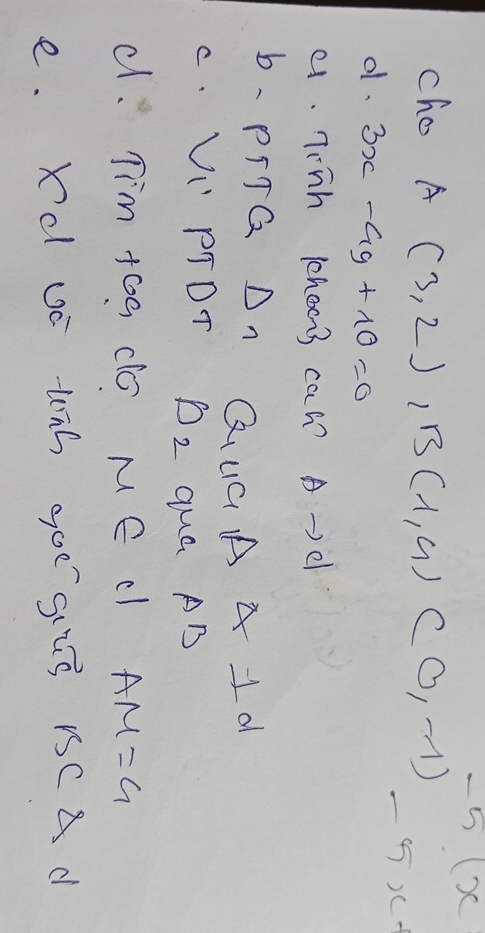 Cho A (3,2), B(1,4) C 0,-1)
d. 3x -4y + 10=0
a. Tính khoảng cah A → d
b. PTTQ Δ1 Qua A & ⊥ d
c. Vi' PTDT Δ2 qua AB
d. Tìm tọa độ M ∈ d AM=4
e. Xđ và tính góc giữa BC & d
-5 (x
-5x+